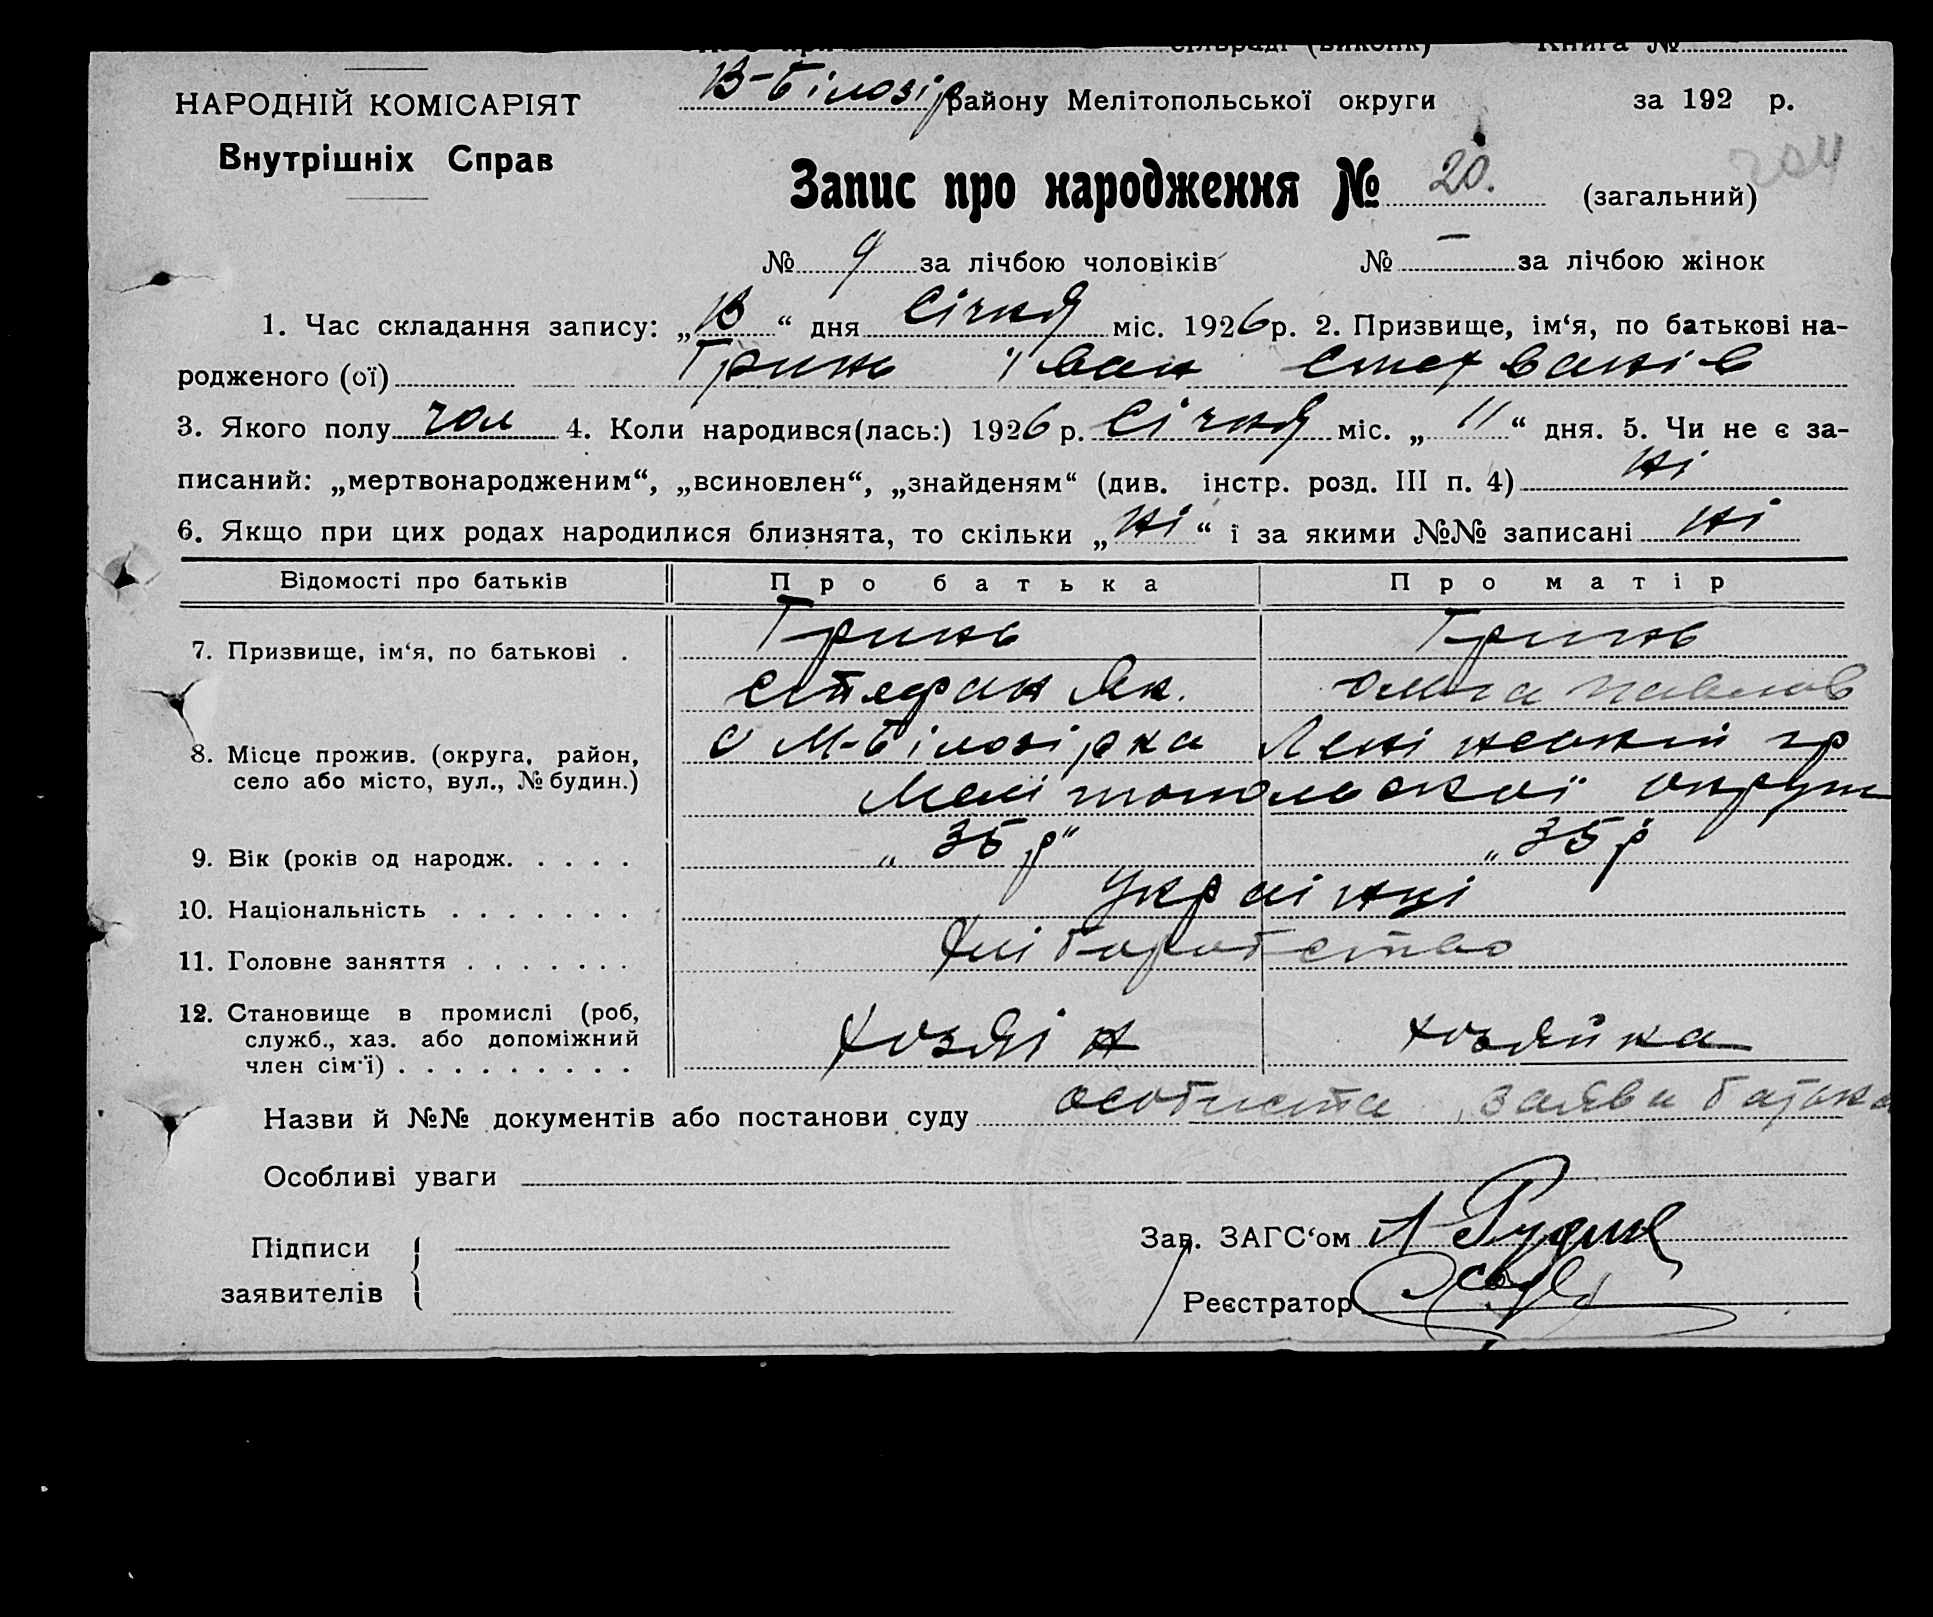 сільраді (виконк) Книга №
НАРОДНІЙ КОМІСАРІЯТ
Внутрішніх Справ
В-Білозір району Мелітопольської округи за 192 р.
204
Запис про народження № 20. (загальний)
№ 9 за лічбою чоловіків № — за лічбою жінок
1. Час складання запису: „13“ дня Січня міс. 1926 р. 2. Призвище, ім‘я, по батькові на-
родженого (ої) Гринь Іван Стефванів
3. Якого полу чол 4. Коли народився(лась:) 1926 р. Січня міс. „11“ дня. 5. Чи не є за-
писаний: „мертвонародженим“, „всиновлен“, „знайденям“ (див. інстр. розд. III п. 4) ні
6. Якщо при цих родах народилися близнята, то скільки „ні“ і за якими №№ записані ні
Відомості про батьків Про батька Про матір
7. Призвище, ім‘я, по батькові . Гринь Гринь
Стефан Як. Ольга Павлов
8. Місце прожив. (округа, район, село або місто, вул., № будин.) с М-Білозірка Ленінський гр
Мелітопольської округи
9. Вік (років од народж. . . . . „35 р“ „35 р
10. Національність . . . . . . . Українці
11. Головне заняття . . . . . . . Хліборобство
12. Становище в промислі (роб, служб., хаз. або допоміжний член сім‘ї) . . . . . . . . . Хозяін хозяйка
Назви й №№ документів або постанови суду особиста заява батька
Особливі уваги
Підписи
заявителів
Зав. ЗАГС‘ом
Реєстратор